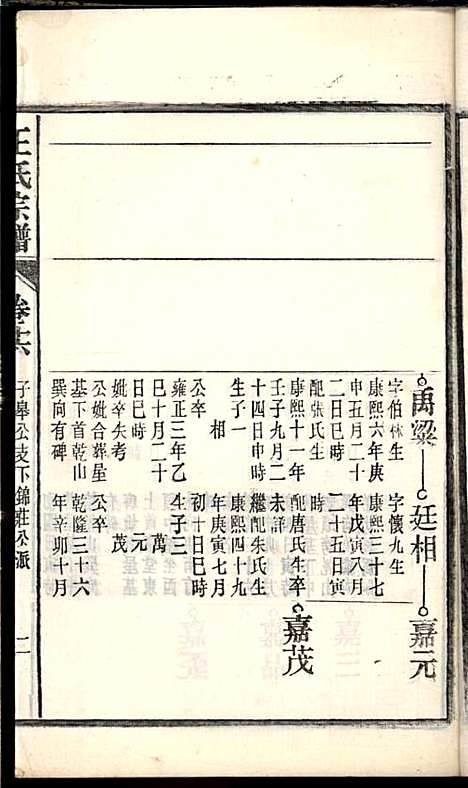 禹粱
字伯林生
康熙六年庚
申五月二十
二日巳時
配張氏生
康熙十一年
壬子九月二
十四日申時
生子一
相
公卒
雍正三年乙
巳十月二十
日巳時
妣卒失考
公妣合葬星
基下首乾山
巽向有碑
廷相
字懷九生
康熙三十七
年戊寅八月
二十五日寅
時
配唐氏生卒
未詳
繼配朱氏生
康熙四十九
年庚寅七月
初十日巳時
生子三
元
茂
公卒
乾隆三十六
年辛卯十月
嘉元
嘉茂
王氏宗譜
卷六
子皋公支下錦莊公派
二